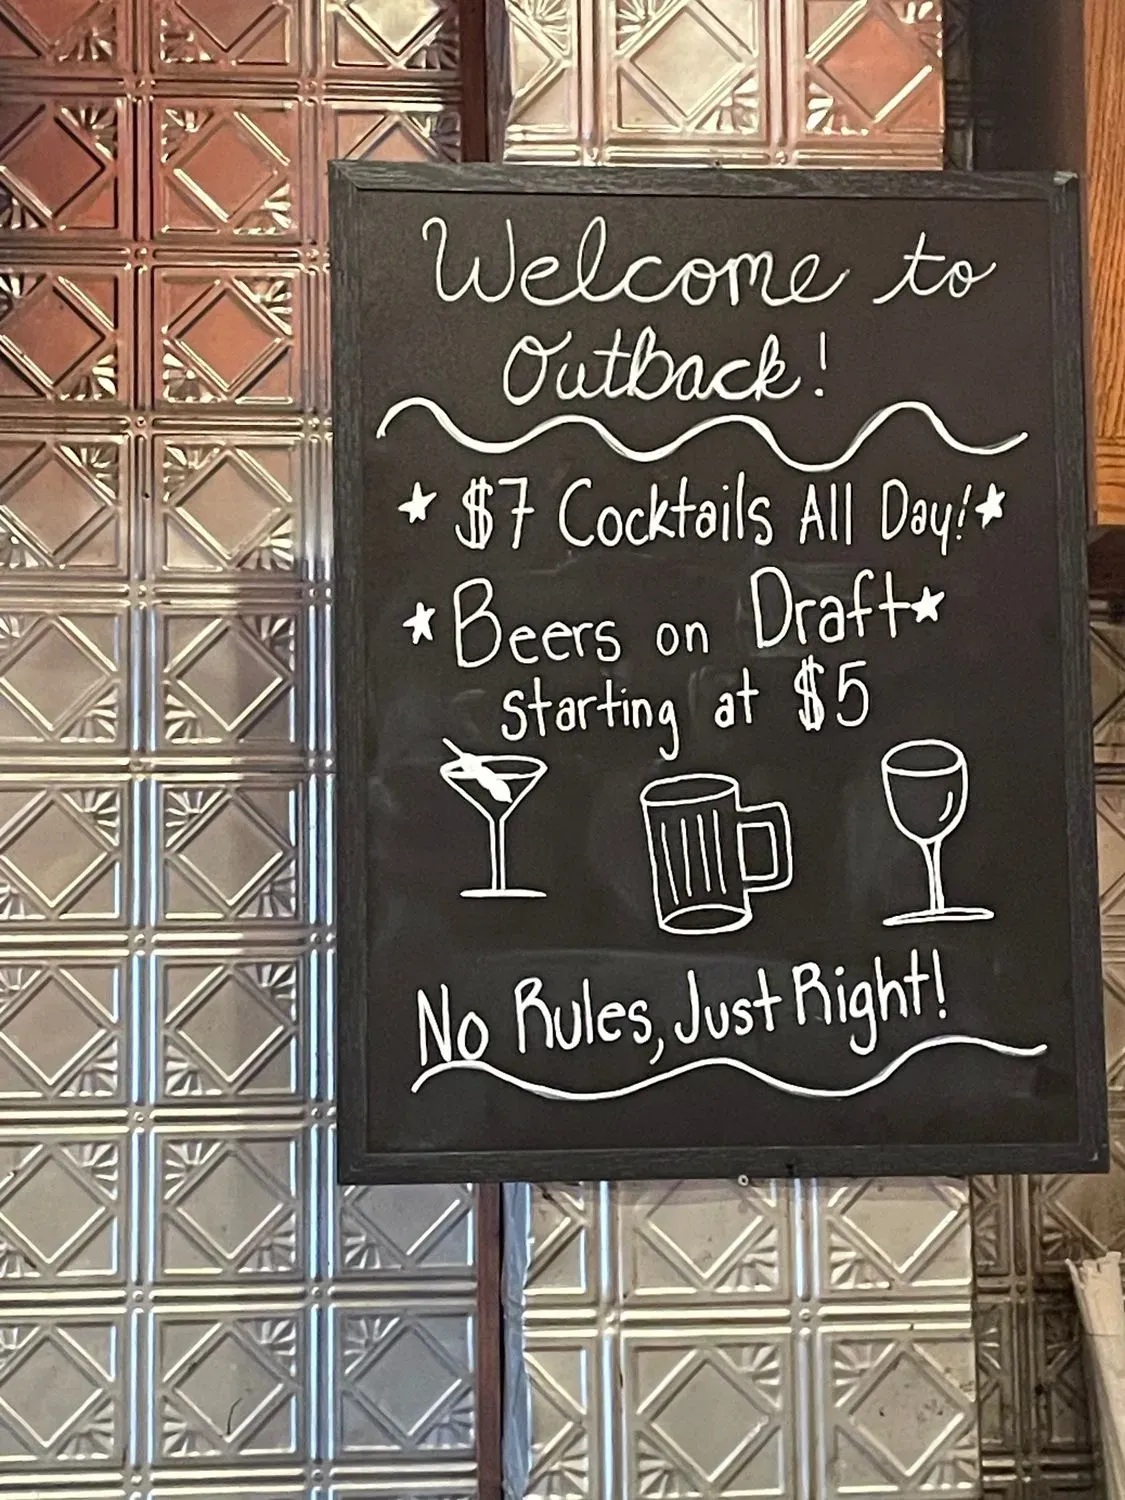 Welcome to
Outback!
$7 Cocktails All Day!
Beers on Draft
starting at $5
No Rules, Just Right!